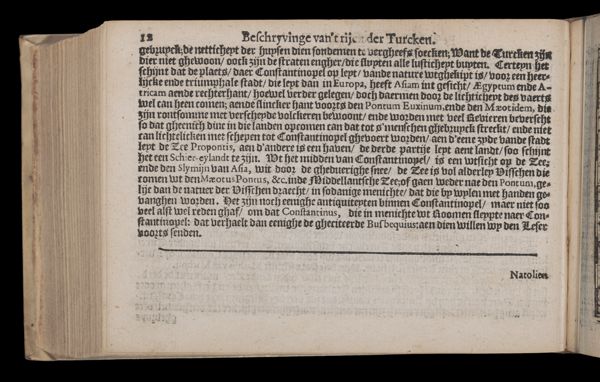 12 Beschryvinge van't rijc der Turcken.
gebruyck; de nettichept der huysen dien sondemen te vergheefs soecken; Want de Turcken zijn
hier niet ghewoon/ oock zijn de straten engher/ die sluyten alle lustichept buyten. Certeyn het
schijnt dat de plaets/ daer Constantinopel op lept/ vande nature weghekipt is/ voor een heer-
lijcke ende triumphale stadt/ die lept dan in Europa, heeft Asiam int gesicht/ Ægyptum ende A-
fricam aende rechterhant/ hoewel verder gelegen/ doch daermen door de lichtichept des vaerts
wel can heen comen; aende slincker hant voorts den Pontum Euxinum, ende den Mæotidem, die
zijn rontsomme met verscheyde volckeren bewoont/ ende worden met veel Revieren beverscht
so dat ghienich dinc in die landen opcomen can dat tot s'menschen ghebruyck streckt/ ende niet
can lichtelicken met schepen tot Constantinopel ghevoert worden/ aen d'eene zyde vande stadt
lept de Zee Propontis, aen d'andere is een haven/ de derde partije lept aent landt/ soo schijnt
het een Schier-eylandt te zijn. Wt het midden van Constantinopel/ is een wtsicht op de Zee;
ende den Slymijn van Asia, wit door de gheduerighe snee/ de Zee is vol alderley Visschen die
comen wt den Mæotus Pontus, &c. inde Middellantsche Zee; of gaen weder nae den Pontum, ge-
lijc dan de natuer der Visschen draecht/ in sodanige menichte/ dat die by wylen met handen ge-
vanghen worden. Het zijn noch eenighe antiquiteyten binnen Constantinopel/ maer niet soo
veel alst wel reden ghaf/ om dat Constantinus, die in menichte wt Roomen sleypte naer Con-
stantinopel: dat verhaelt dan eenighe de gheciteerde Busbequius: aen dien willen wy den Leser
voorts senden.
Natolien